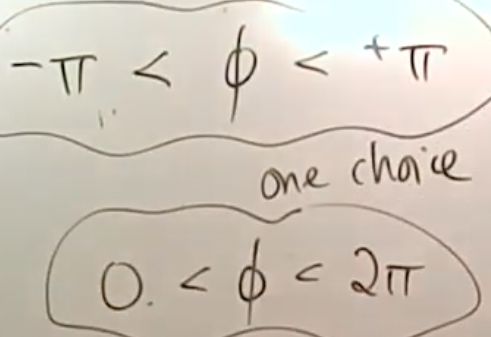 -π < ϕ < +π
one choice
0. < ϕ < 2π